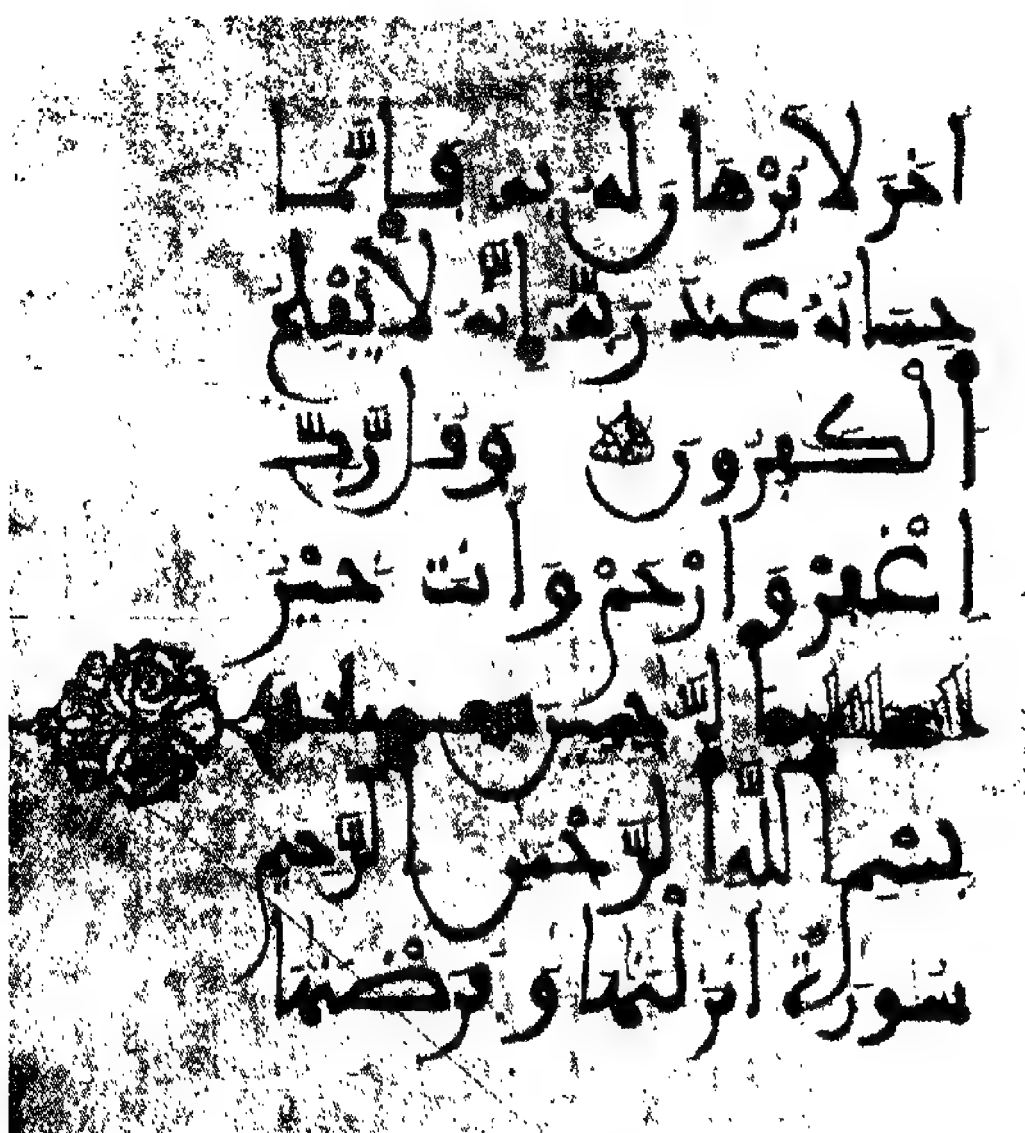 اخَرَ لَا بُرْهَانَ لَهُ بِهِ فَإِنَّمَا
حِسَابُهُ عِندَ رَبِّهِ إِنَّهُ لَا يُفْلِحُ
اَلْكَٰفِرُونَ وَقُل رَّبِّ
اغْفِرْ وَارْحَمْ وَأَنتَ خَيْرُ
اَلرَّٰحِمِينَ
بِسْمِ اِللَّهِ اِلرَّحْمَٰنِ اِلرَّحِيمِ
سُورَةٌ أَنزَلْنَٰهَا وَفَرَضْنَٰهَا